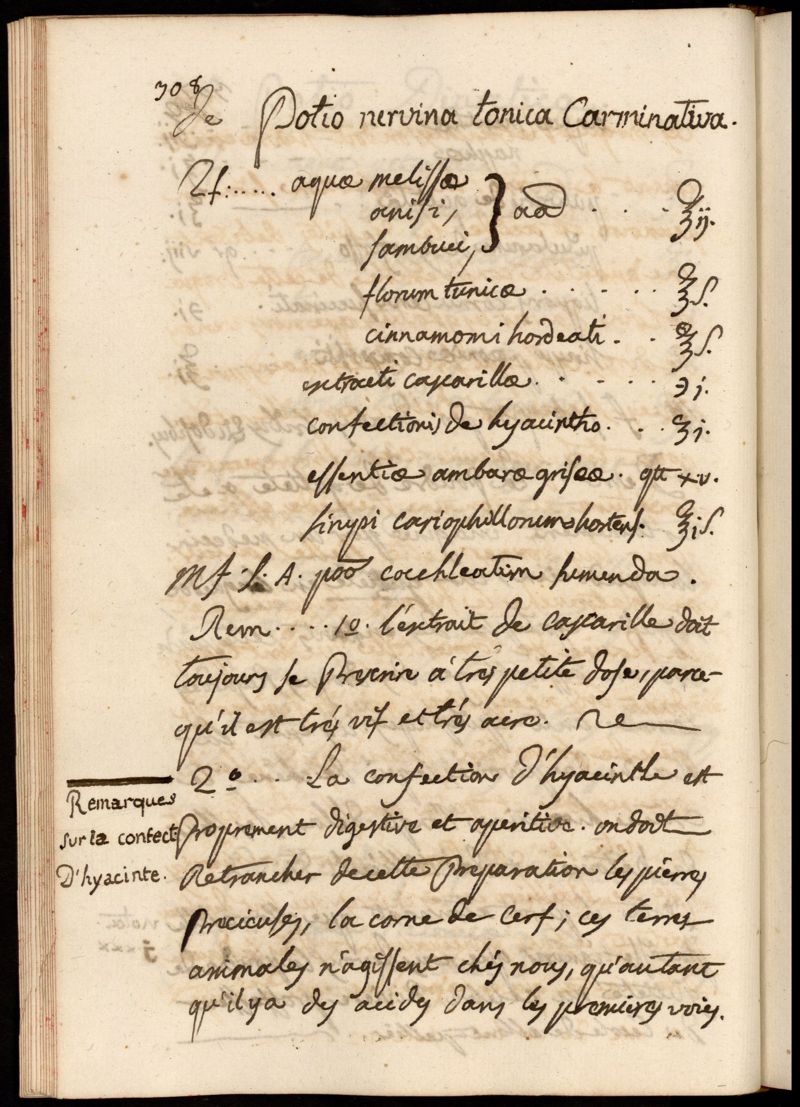 308
de Potio nervina tonica Carminativa.
♃:..... aquæ melissæ
anisi, } aa . . . ℥ij.
sambuci,
florum tunicæ . . . . . ℥s.
cinnamomi hordeati . . ℥s.
extracti cascarillæ . . . . ℈j.
confectionis de hyacintho. . . ʒj.
essentiæ ambaræ griseæ. gtt xv.
sirupi cariophillorum hortens. ℥js.
Mf. S. A. poo cochleatim sumenda.
Rem . . . . 1o. l'extrait de cascarille doit
toujours se Prescrire à très petite dose, parce-
qu'il est très vif et très acre.
2o . . . La confection d'hyacinthe est
Proprement digestive et aperitive. on doit
Retrancher de cette Preparation les pierres
Precieuses, la corne de cerf; ces terres
animales n'agissent chés nous, qu'autant
qu'il ya des acides dans les premieres voies.
Remarques
sur la confect
D'hyacinte.